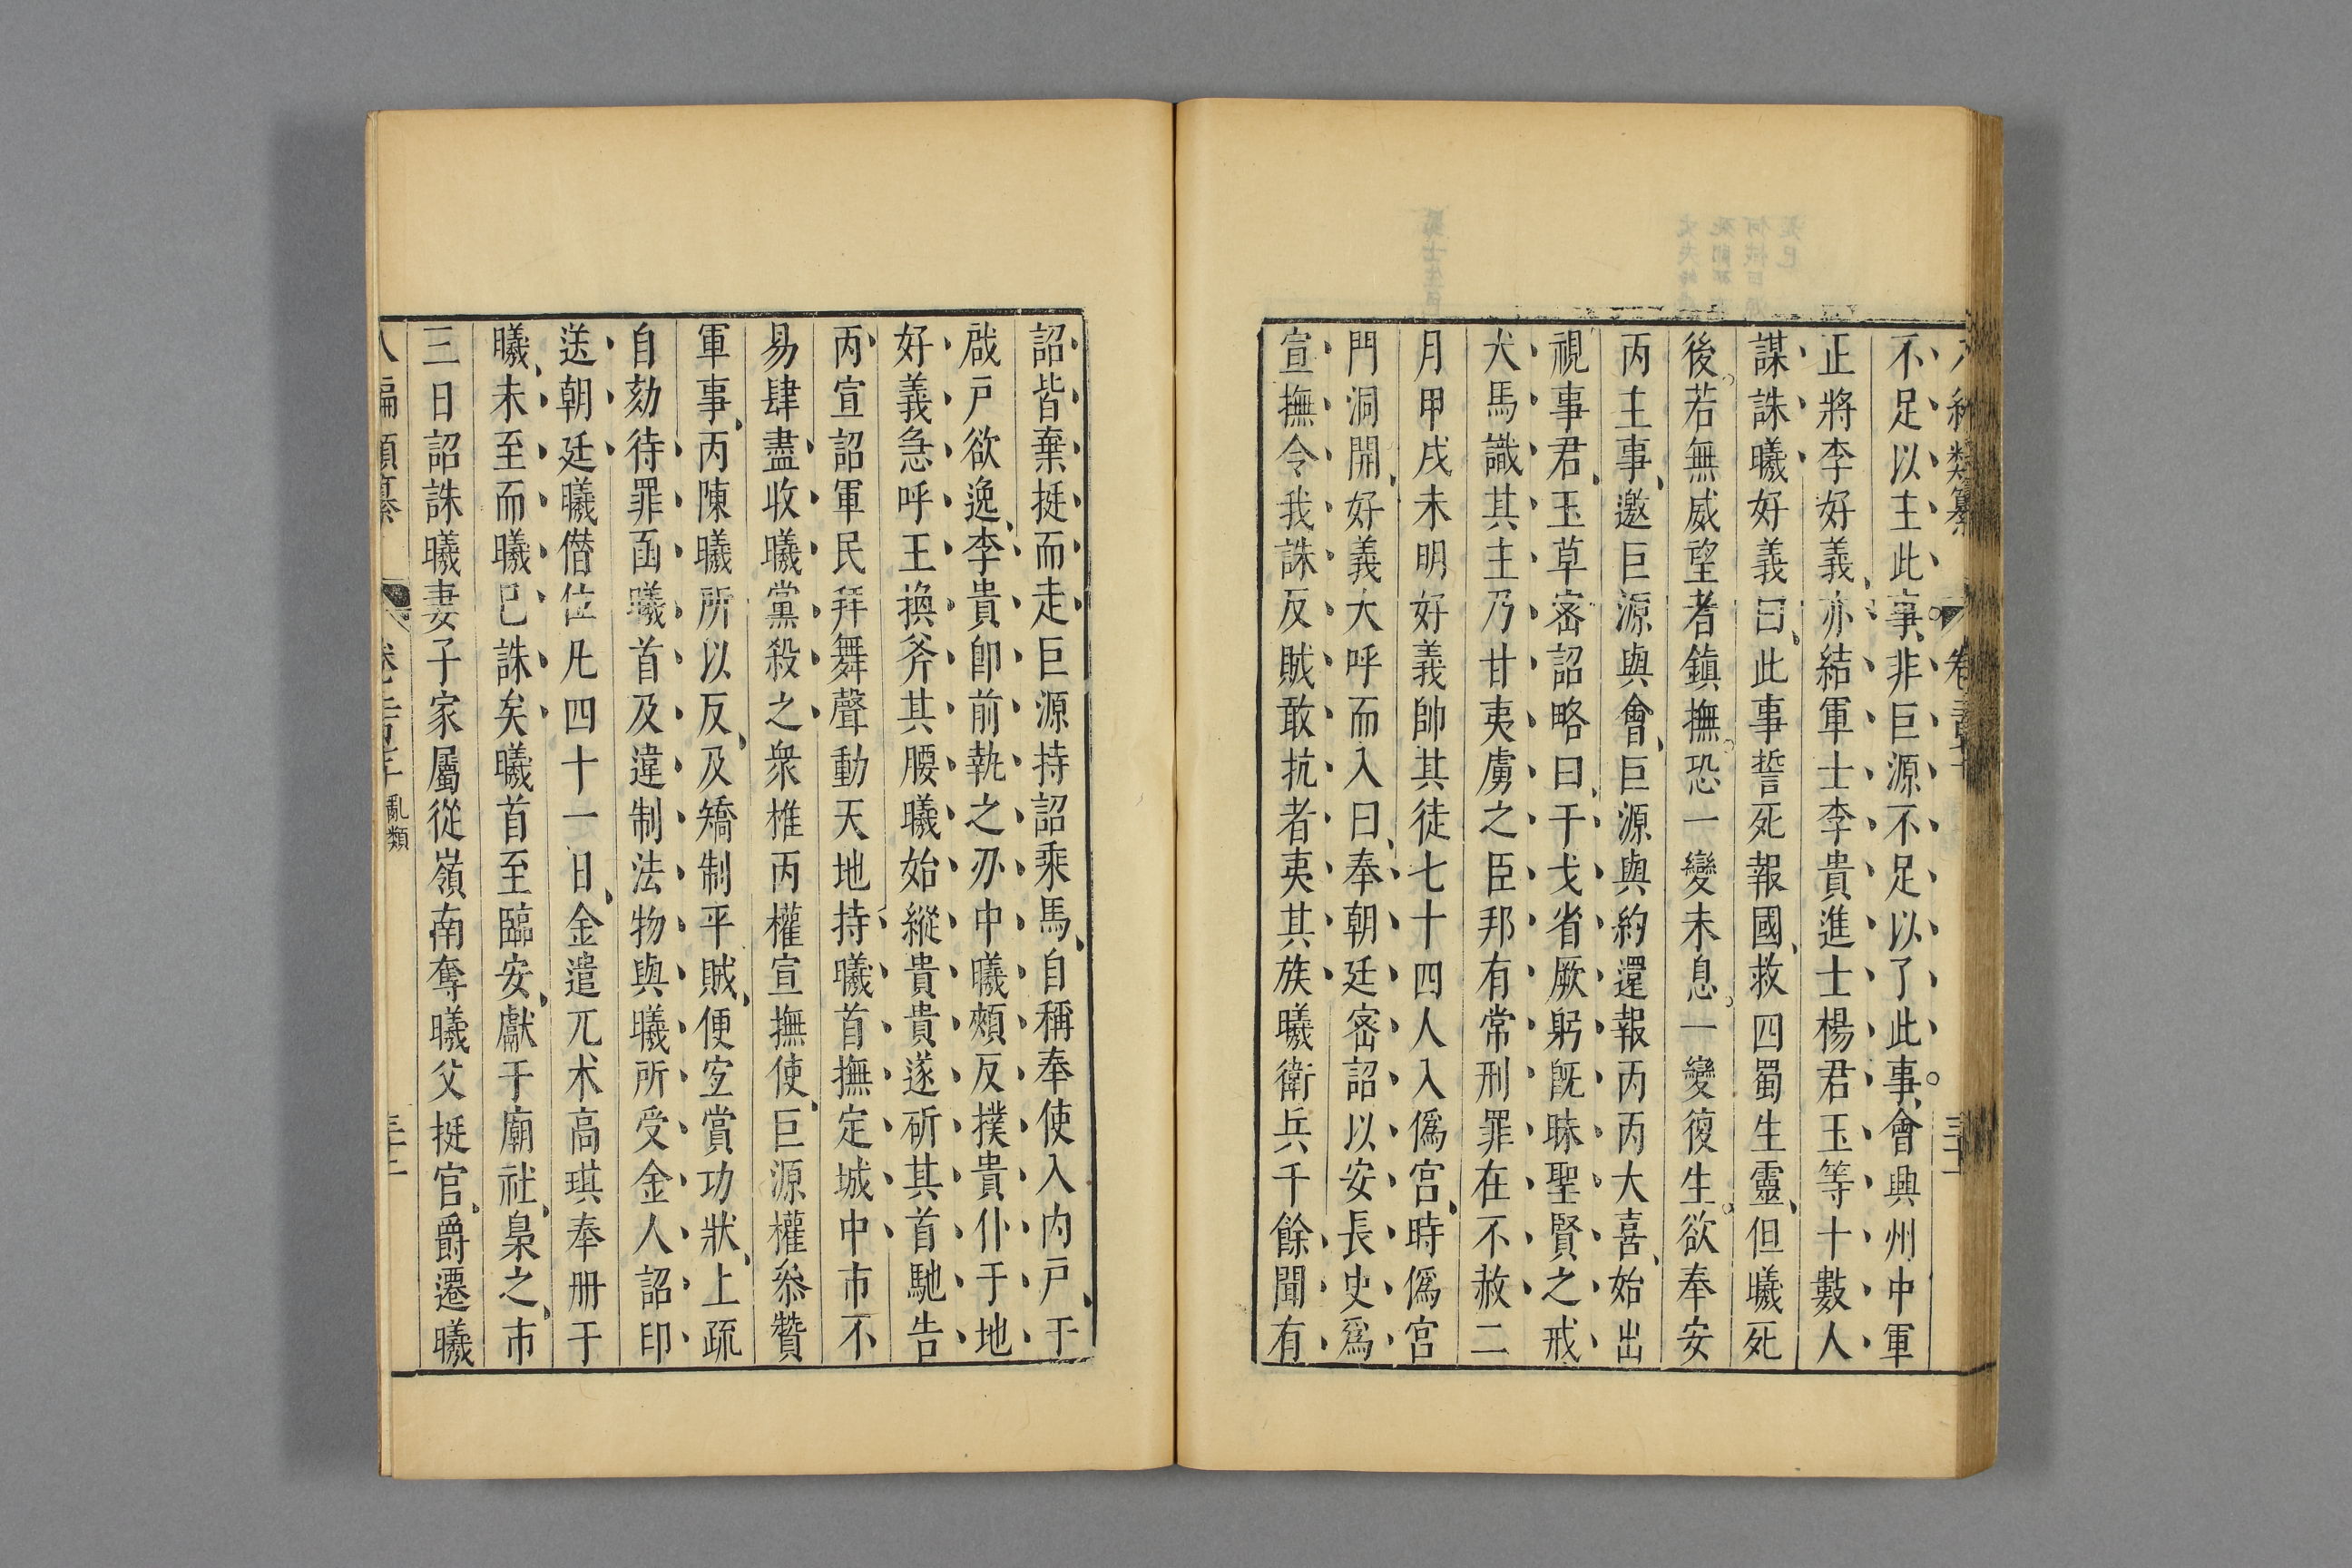 不足以主此事非巨源不足以了此事會興州中軍
正將李好義亦結軍士李貴進士楊君玉等十數人
謀誅曦好義曰此事誓死報國救四蜀生靈但曦死
後若無威望者鎮撫恐一變未息一變復生欲奉安
丙主事邀巨源與會巨源與約還報丙丙大喜始出
視事君玉草密詔略曰干戈省厥躬旣昧聖賢之戒
犬馬識其主乃甘夷虜之臣邦有常刑罪在不赦二
月甲戌未明好義帥其徒七十四人入僞宮時僞宮
門洞開好義大呼而入曰奉朝廷密詔以安長史爲
宣撫令我誅反賊敢抗者夷其族曦衛兵千餘聞有
詔皆棄挺而走巨源持詔乘馬自稱奉使入內戶于
啟戶欲逸李貴卽前執之刃中曦頰反撲貴仆于地
好義急呼王換斧其腰曦始縱貴貴遂斫其首馳告
丙宣詔軍民拜舞聲動天地持曦首撫定城中市不
易肆盡收曦黨殺之衆推丙權宣撫使巨源權叅贊
軍事丙陳曦所以反及矯制平賊便宜賞功狀上疏
自劾待罪函曦首及違制法物與曦所受金人詔印
送朝廷曦僭位凡四十一日金遣兀术高琪奉册于
曦未至而曦已誅矣曦首至臨安獻于廟社梟之市
三日詔誅曦妻子家屬從嶺南奪曦父挺官爵遷曦
編類纂 亂類